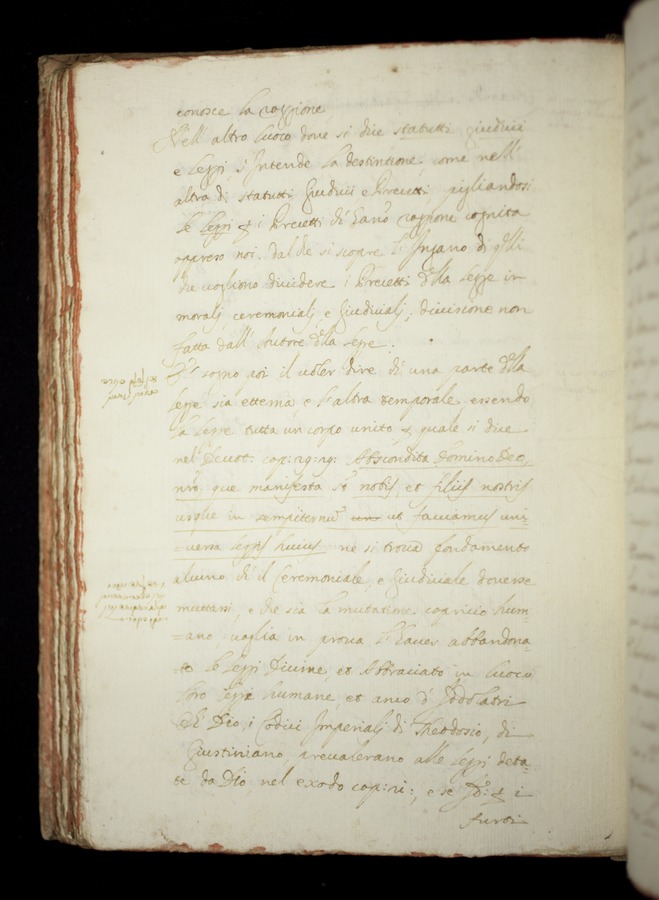 conosce la raggione
Nell' altro luoco dove si dice statutti giudicii
e leggi s'intende la destintione, come nell'
altra di statutti Giudicii e Precetti, pigliandosi
le leggi & i Precetti di raggione cognita
appreso noi. dal che si scopre l' Ingano di q̃lli
che vogliono dividere i Precetti d̃lla legge in
moralj, ceremonialj, e Giudicialj, divisione non
fatta dall' Autore d̃lla legge.
sogno poi il voler dire ch' una parte d̃lla
legge sia etterna, e l'altra temporale, essendo
la legge tutta un corpo unito, & quale si dice
nel Deuot: cap: 29: 29: Abscondita Domino Deo,
nr̃o, que manifesta st̃ nobis, et filijs nostris
usque in sempiternũ ut faciamus uni
=versa legis huius ne si trova fondamento
alcuno, ch' il Ceremoniale, e Giudiciale dovesse
muttarsi, e che sia la mutatione capricio hum=
=ano vaglia in prova l' haver abbandona=
to le leggi Divine, et Abbraciato in luoco
loro legge humane, et anco d' Idolatri
Dio, i Codici Imperialj di Theodosio, di
Giustiniano, prevalerano alle leggi deta=
te da Dio, nel exodo cap: 21:, e se &  i
furti